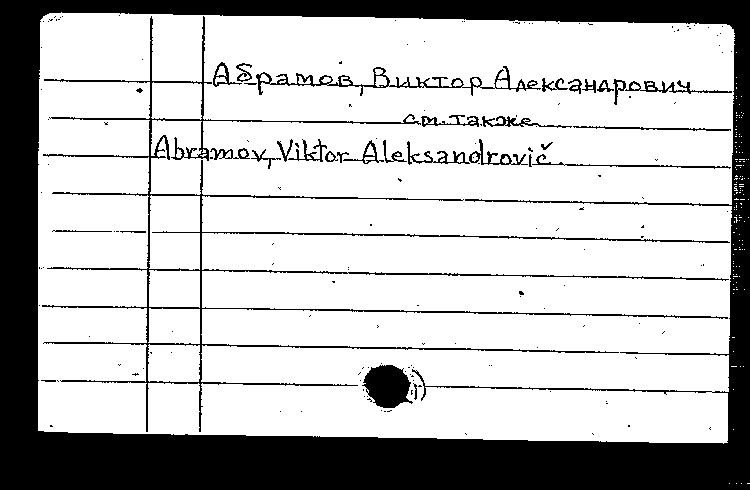 Абрамов, Виктор Александрович
см. также
Abramov, Viktor Aleksandrovič.